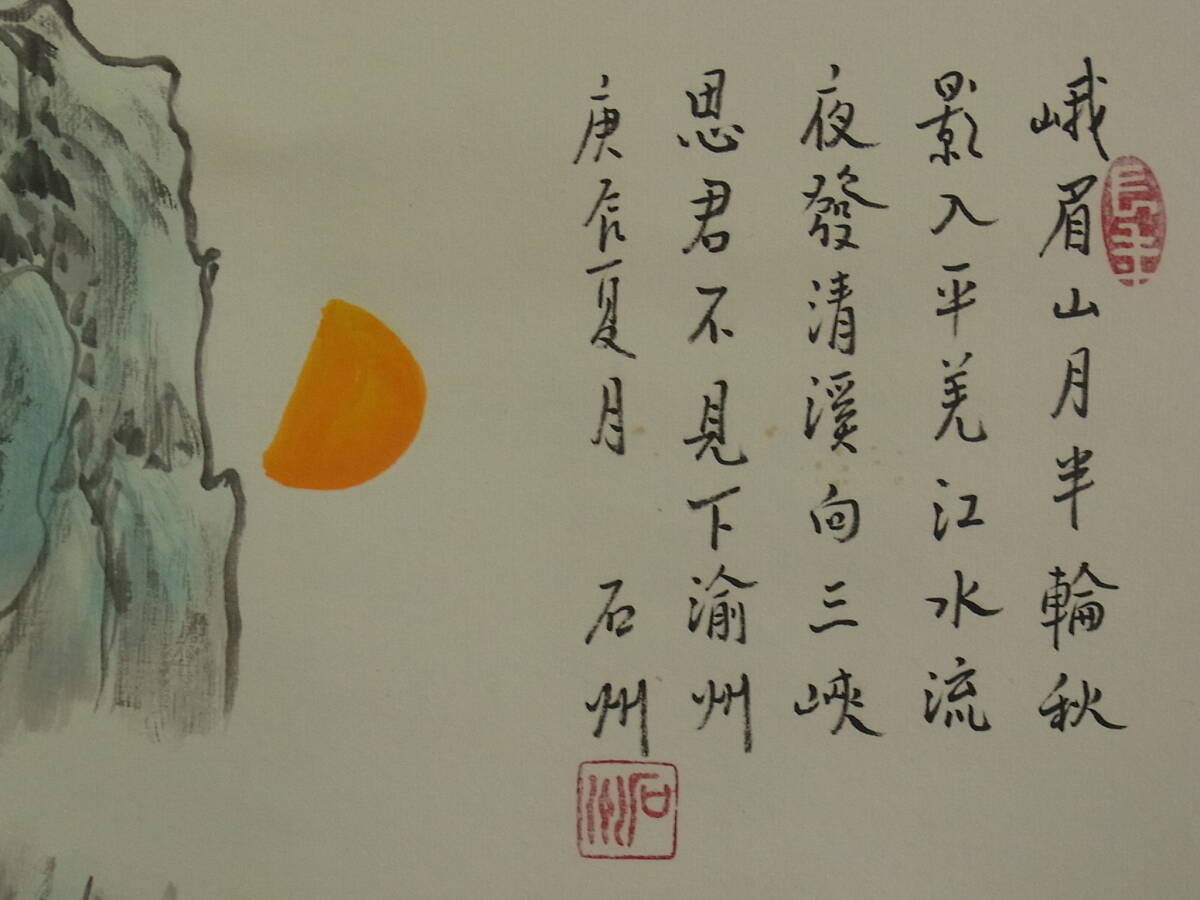 峨眉山月半輪秋
影入平羌江水流
夜發清溪向三峽
思君不見下渝州
庚辰夏月 石州
石州